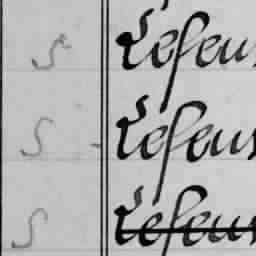 S Lefeu
S Lefeu
S Lefeu